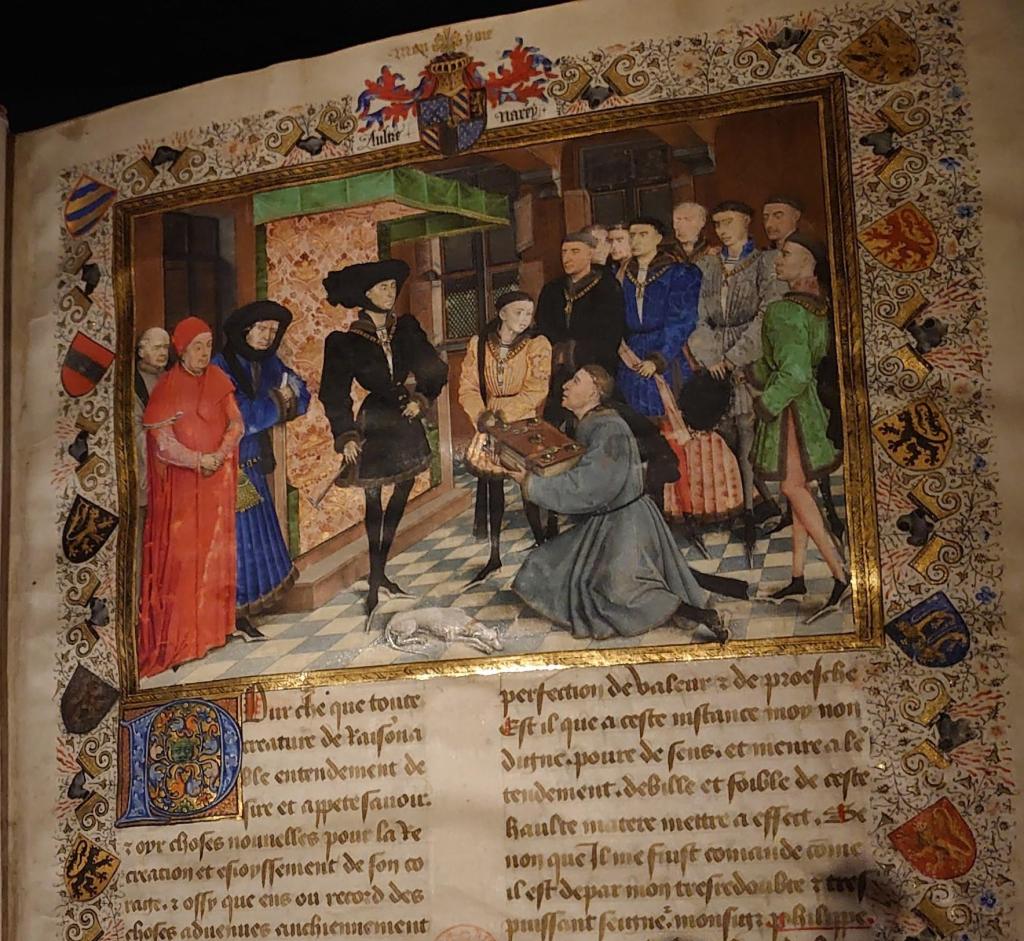 Aultre narey
Pour che que toute
creature de Raison a
ble entendement de
sire et appete savoir.
⁊ oyr choses nouvelles pour la re
creation et esioyssement de son co
rage. ⁊ ossy que ens ou record des
choses advenues anchiennement
perfection de valeur ⁊ de proesche
Est il que a ceste instance moy non
digne. povre de sens. et menre
tendement. debille et foible de ceste
haulte matere mettre a effect. Se
non que Il me fuist comande come
il est de par mon tresredoubte ⁊ tres
puissant seigneur monseigneur phelippe.